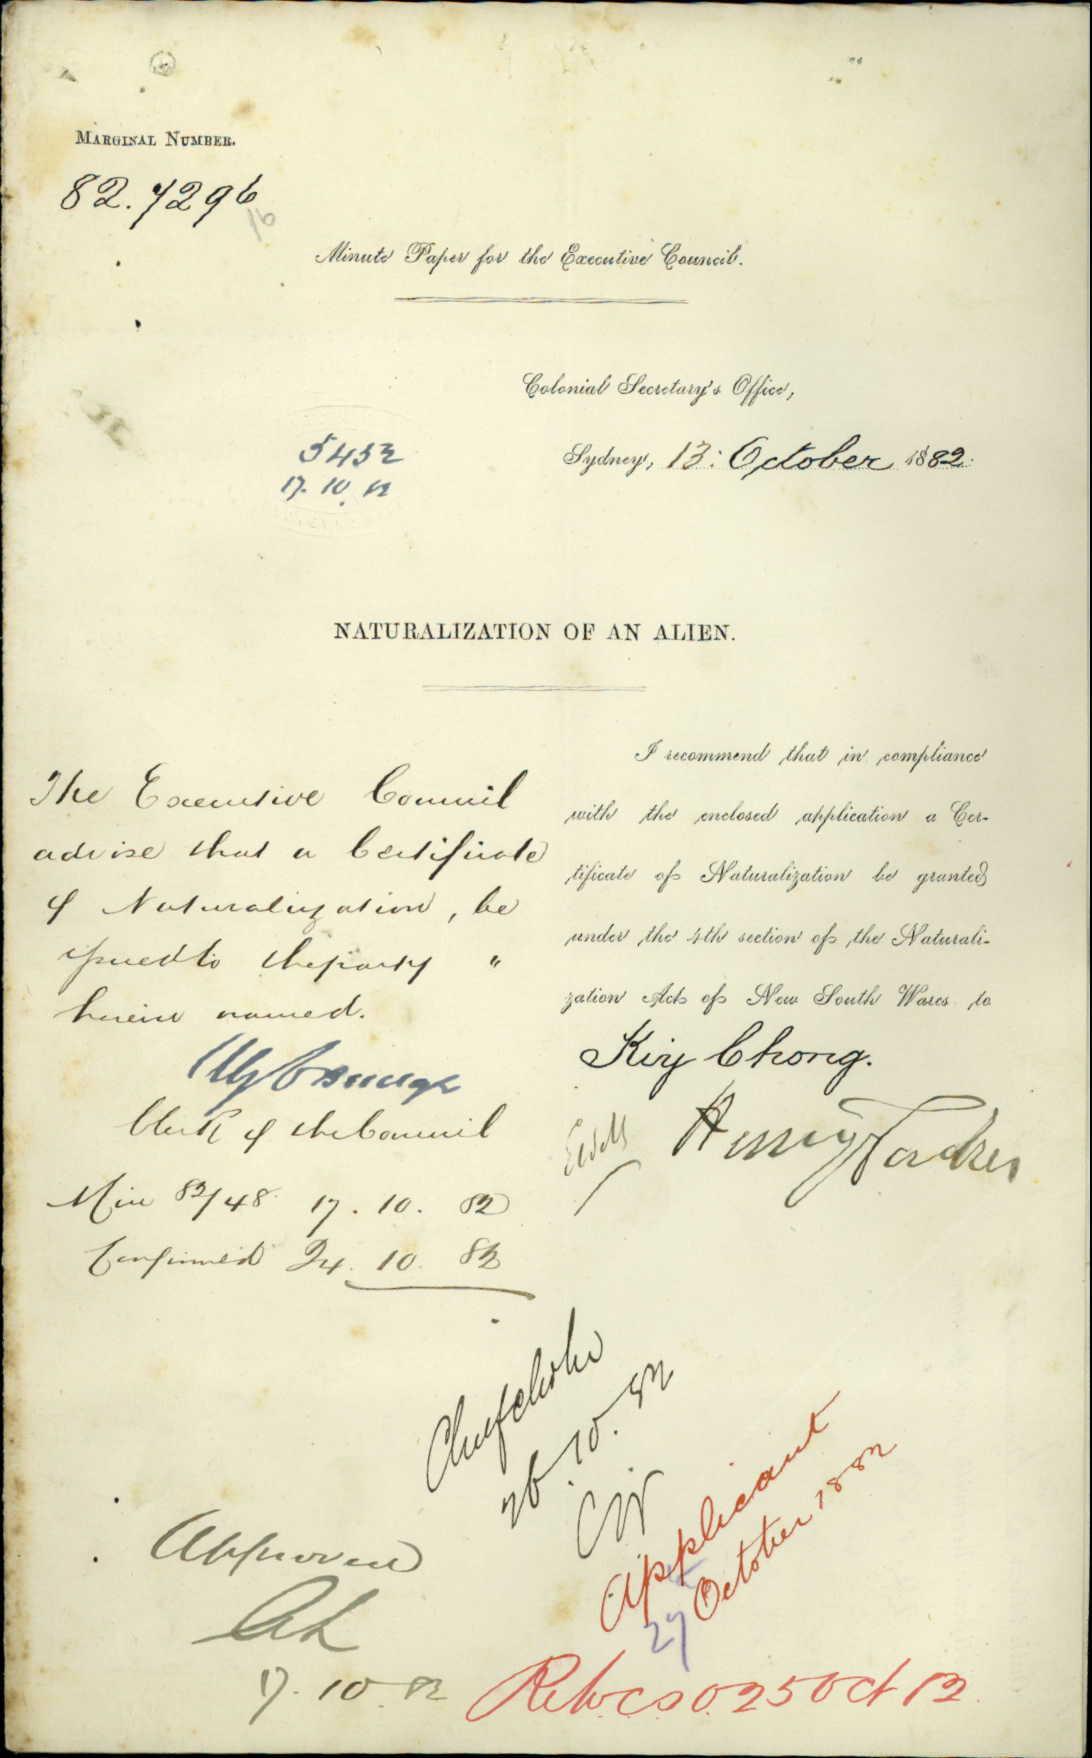 MARGINAL NUMBER.
82.7296
16
Minute Paper for the Executive Council.
Colonial Secretary's Office,
Sydney, 13: October 1882.
5452
17. 10. 82
NATURALIZATION OF AN ALIEN.
I recommend that in compliance
with the enclosed application a Cer-
tificate of Naturalization be granted
under the 4th section of the Naturali-
zation Act of New South Wales to
Kiy Chong.
Henry Parkes
The Executive Council
advise that a Certificate
of Naturalization, be
issued to the party "
herein named.
Clerk of the Council
Min 82/48 17. 10. 82
Confirmed 24. 10. 82
26.10.82
Applicant
27 October 1882
Approved
AL
17. 10. 82
Retd C.S.O. 25 Oct 82